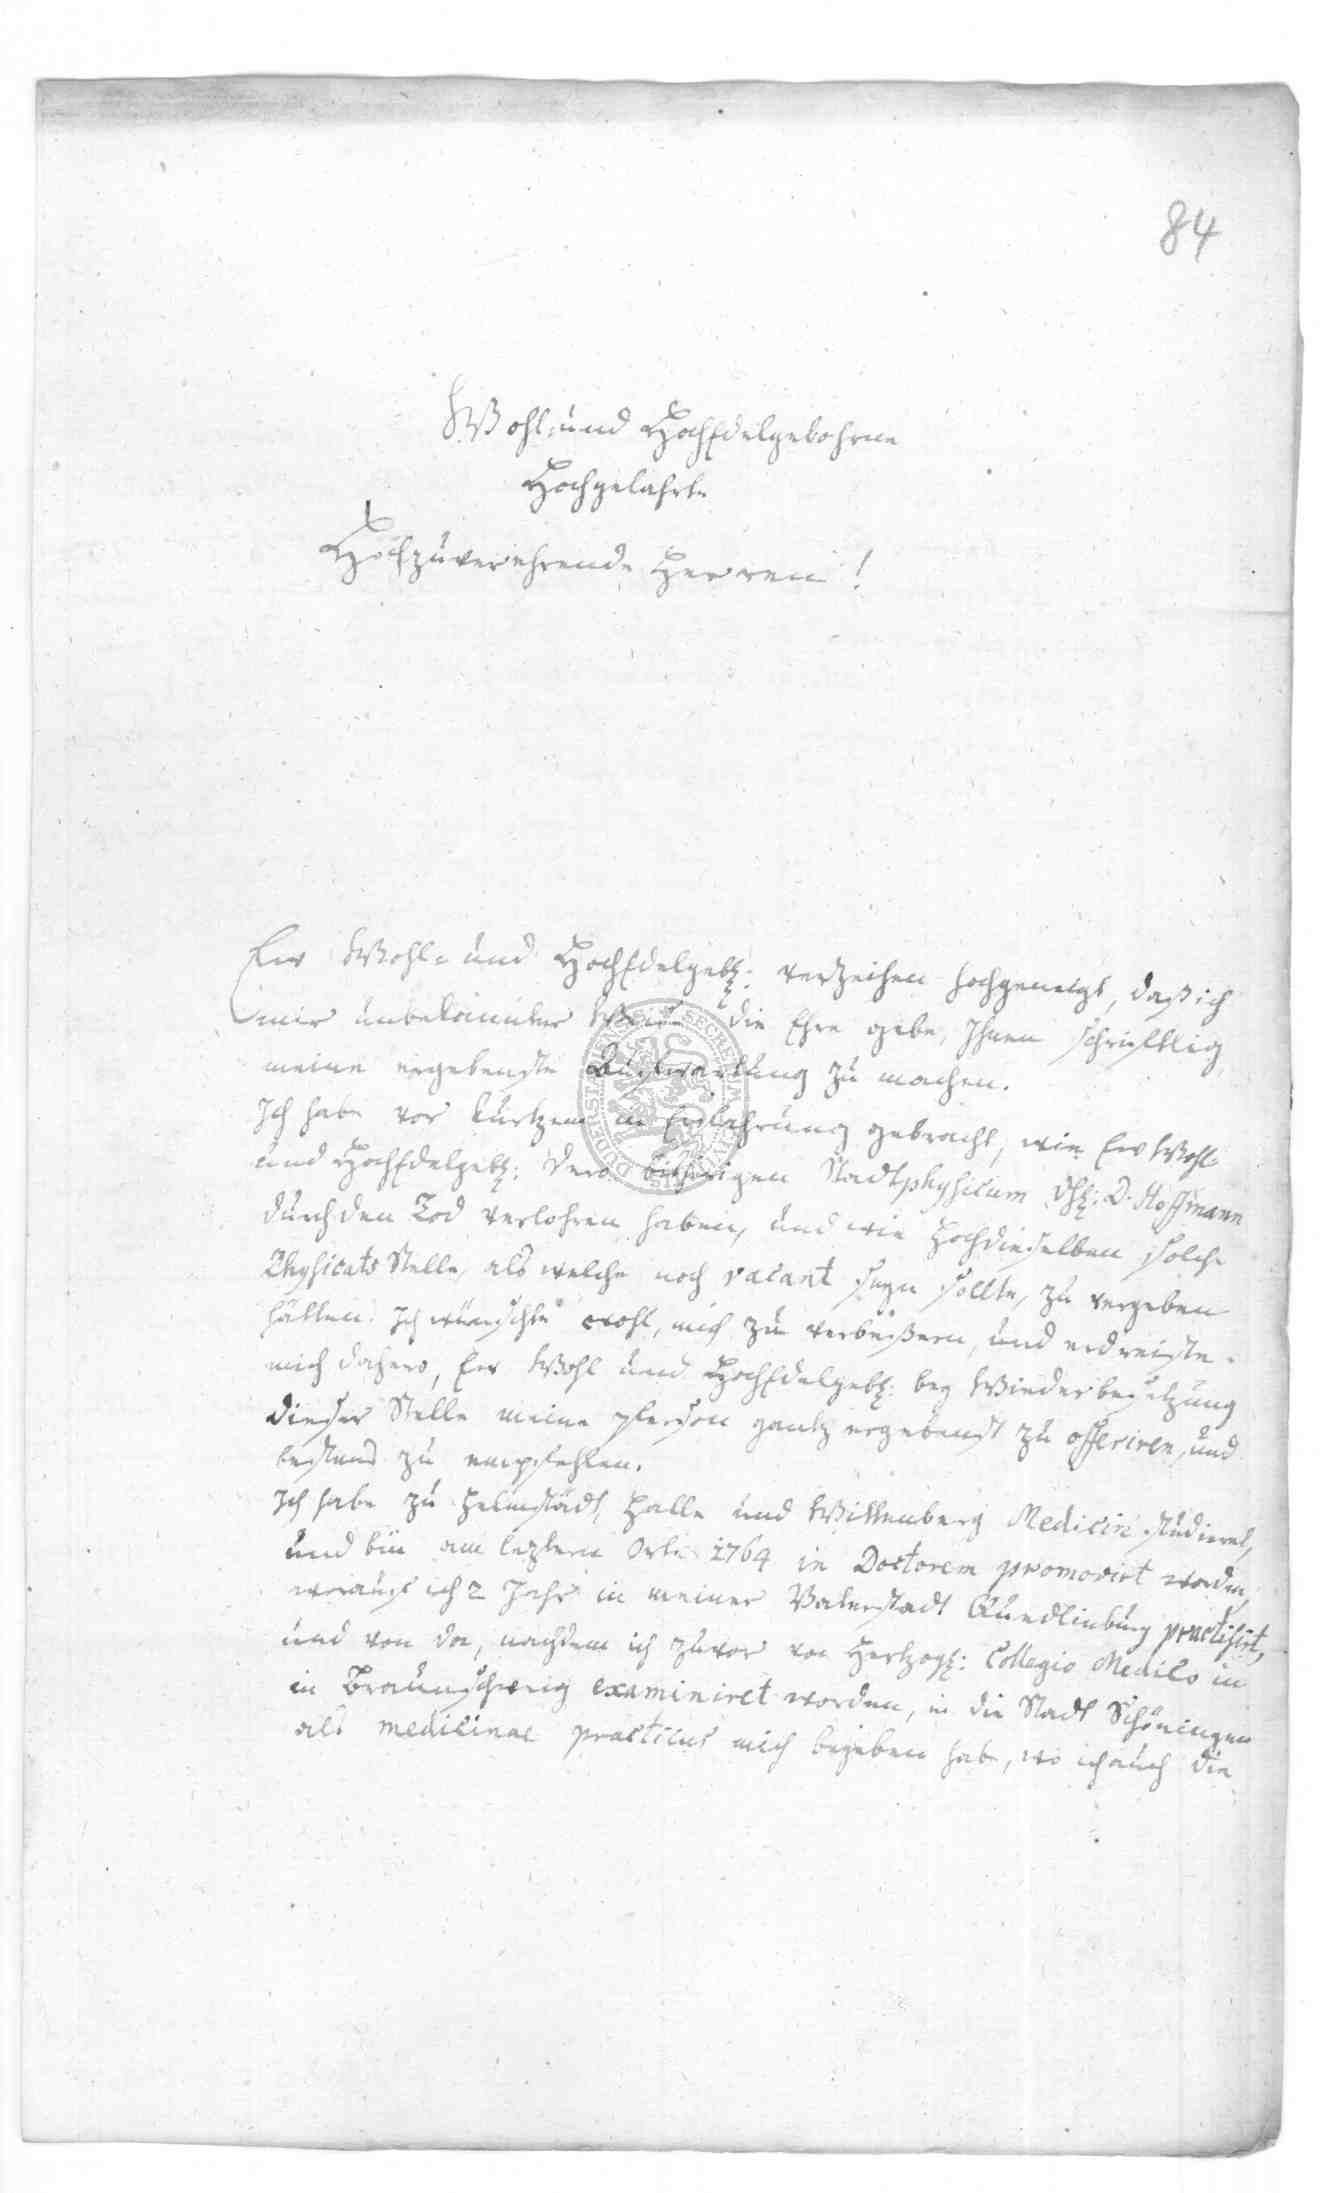 84
Wohl- und HochEdelgebohrne
Hochgelahrte
Hochzuverehrende Herren!
Ew Wohl- und HochEdelgeb: verzeihen hochgeneigt, daß ich
mir unbekannter Weise die Ehre gebe, Ihnen schriftlig
meine ergebenste Aufwartung zu machen.
Ich habe vor kurtzem in Erfahrung gebracht, wie Ew Wohl-
und HochEdelgeb: dero bisherigen Stadtphysicum H: D. Hoffmann
durch den Tod verlohren haben, und wie Hochdieselben solche
Physicats Stelle, als welche noch vacant seyn sollte, zu vergeben
hätten. Ich wünschte wohl, mich zu verbeßern, und erdreiste
mich dahero, Ew Wohl und HochEdelgeb: bey Wiederbesetzung
dieser Stelle meine Person gantz ergebenst zu offeriren, und
bestens zu empfehlen.
Ich habe zu Helmstädt, Halle und Wittenberg Medicin studieret,
und bin am leztern Orte 1764 in Doctorem promovirt worden,
worauf ich 2 Jahr in meiner Vaterstadt Quedlinburg practisirt,
und von da, nachdem ich zuvor von Hertzogl: Collegio Medico in
in Braunschweig examiniret worden, in die Stadt Schöningen
als medicinae practicus mich begeben habe, wo ich auch die